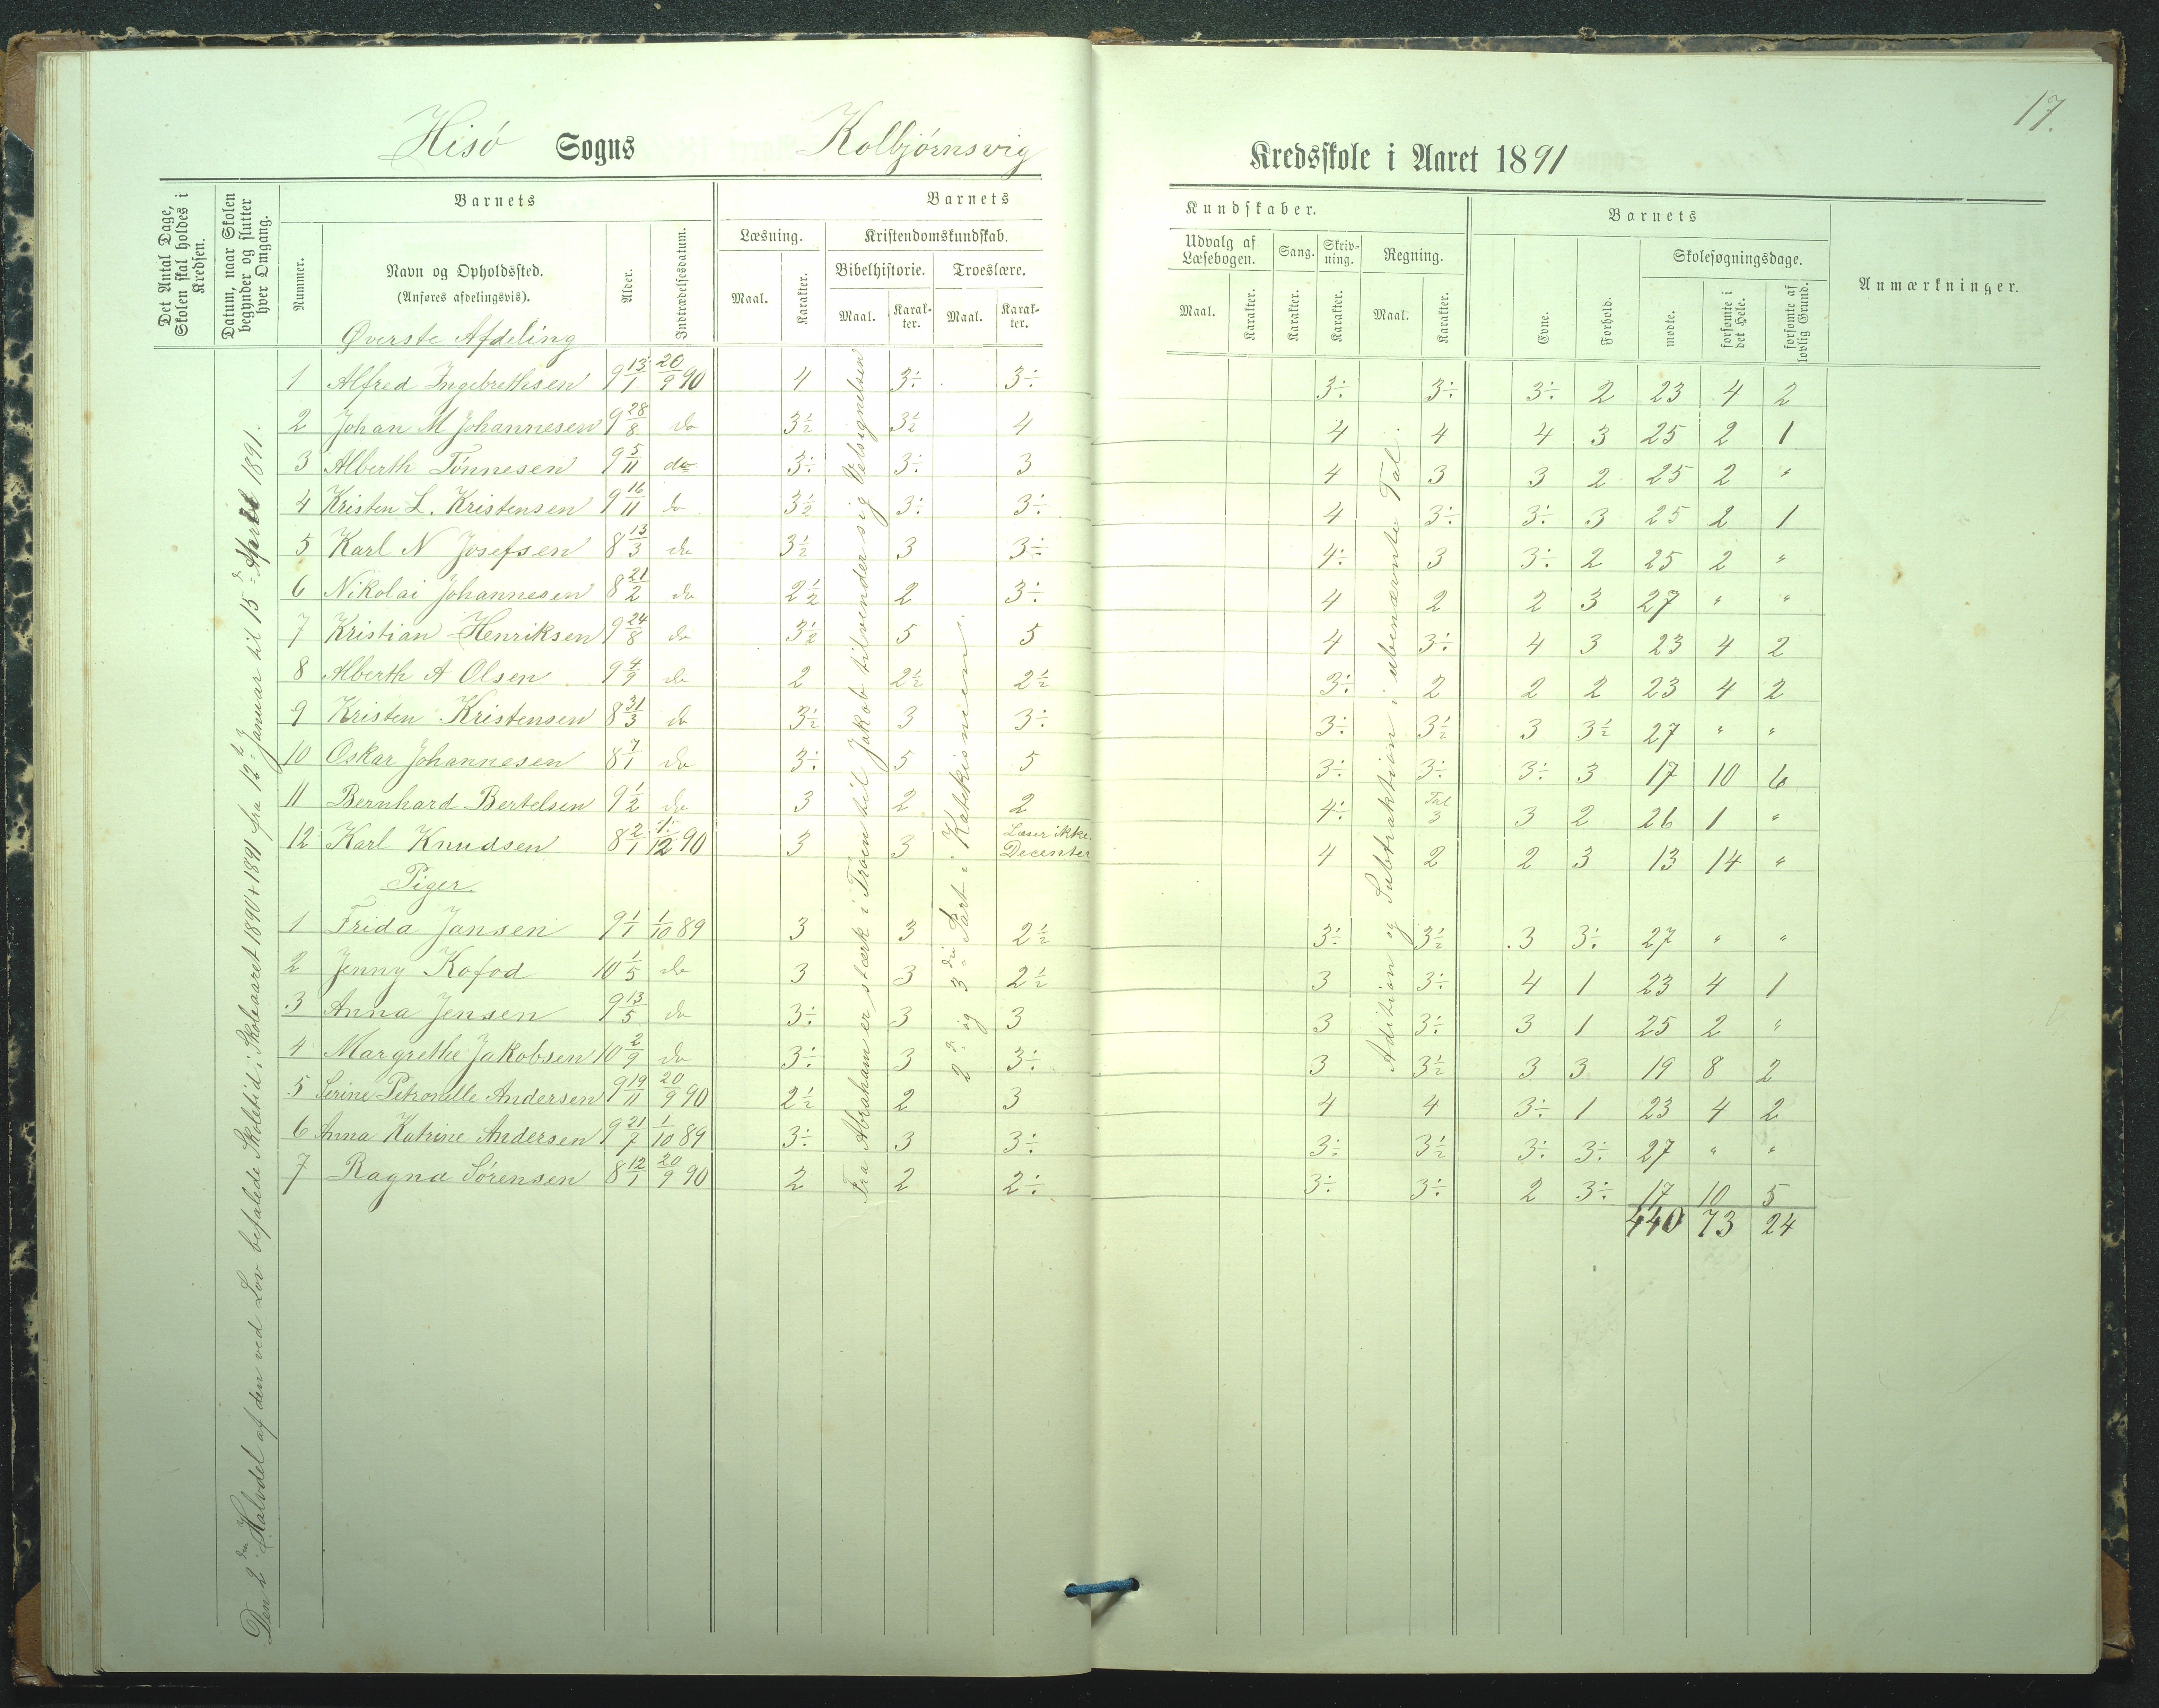 17.
Hisö Sogns Kolbjörnsvig Kredsskole i Aaret 1891
Det Antal Dage, Skolen skal holdes i Kredsen.
Datum, naar Skolen begynder og slutter hver Omgang.
Barnets
Nummer.
Navn og Opholdssted.
(Anføres afdelingsvis).
Alder.
Indtrædelsesdatum.
Barnets Kundskaber.
Læsning.
Maal.
Karakter.
Kristendomskundskab.
Bibelhistorie.
Maal.
Karakter.
Troeslære.
Maal.
Karakter.
Udvalg af Læsebogen.
Maal.
Karakter.
Sang.
Karakter.
Skrivning.
Karakter.
Regning.
Maal.
Karakter.
Barnets
Evne.
Forhold.
Skolesøgningsdage.
mødte.
forsømte i det Hele.
forsømte af lovlig Grund.
Anmærkninger.
Den 2den Halvdel af den ved Lov befalede Skoletid i Skoleaaret 1890 + 1891 fra 12te Januar til 15de April 1891.
Fra Abraham er stærk i Troen til Jakob tilvender sig Velsignelsen
2den og 3die Part i Katekismen.
Adition og Subtraktion i ubenævnte Tal.
Øverste Afdeling
1 Alfred Ingebrethsen 9 13/1 20/9 90 4 3÷ 3÷ 3÷ 3÷ 3÷ 2 23 4 2
2 Johan M Johannesen 9 28/8 do 3½ 3½ 4 4 4 4 3 25 2 1
3 Alberth Tönnesen 9 5/11 do 3÷ 3÷ 3 4 3 3 2 25 2 "
4 Kristen L. Kristensen 9 16/11 do 3½ 3÷ 3÷ 4 3÷ 3÷ 3 25 2 1
5 Karl N Josefsen 8 13/3 do 3½ 3 3÷ 4÷ 3 3÷ 2 25 2 "
6 Nikolai Johannesen 8 21/2 do 2½ 2 3÷ 4 2 2 3 27 " "
7 Kristian Henriksen 9 24/8 do 3½ 5 5 4 3÷ 4 3 23 4 2
8 Alberth A Olsen 9 4/9 do 2 2½ 2½ 3÷ 2 2 2 23 4 2
9 Kristen Kristensen 8 31/3 do 3½ 3 3÷ 3÷ 3½ 3 3½ 27 " "
10 Oskar Johannesen 8 7/1 do 3÷ 5 5 3÷ 3÷ 3÷ 3 17 10 6
11 Bernhard Bertelsen 9 1/2 do 3 2 2 4÷ Tal 3 3 2 26 1 "
12 Karl Knudsen 8 2/1 1/12 90 3 3 Læser ikke Decenter 4 2 2 3 13 14 "
Piger
1 Frida Jansen 9 1/1 1/10 89 3 3 2½ 3÷ 3½ 3 3÷ 27 " "
2 Jenny Kofod 10 1/5 do 3 3 2½ 3 3÷ 4 1 23 4 1
3 Anna Jensen 9 13/5 do 3÷ 3 3 3 3÷ 3 1 25 2 "
4 Margrethe Jakobsen 10 2/9 do 3÷ 3 3÷ 3 3½ 3 3 19 8 2
5 Serine Petronelle Andersen 9 19/11 20/9 90 2½ 2 3 4 4 3÷ 1 23 4 2
6 Anna Katrine Andersen 9 21/7 1/10 89 3÷ 3 3÷ 3÷ 3½ 3÷ 3÷ 27 " "
7 Ragna Sörensen 8 12/1 20/9 90 2 2 2÷ 3÷ 3÷ 2 3÷ 17 10 5
440 73 24